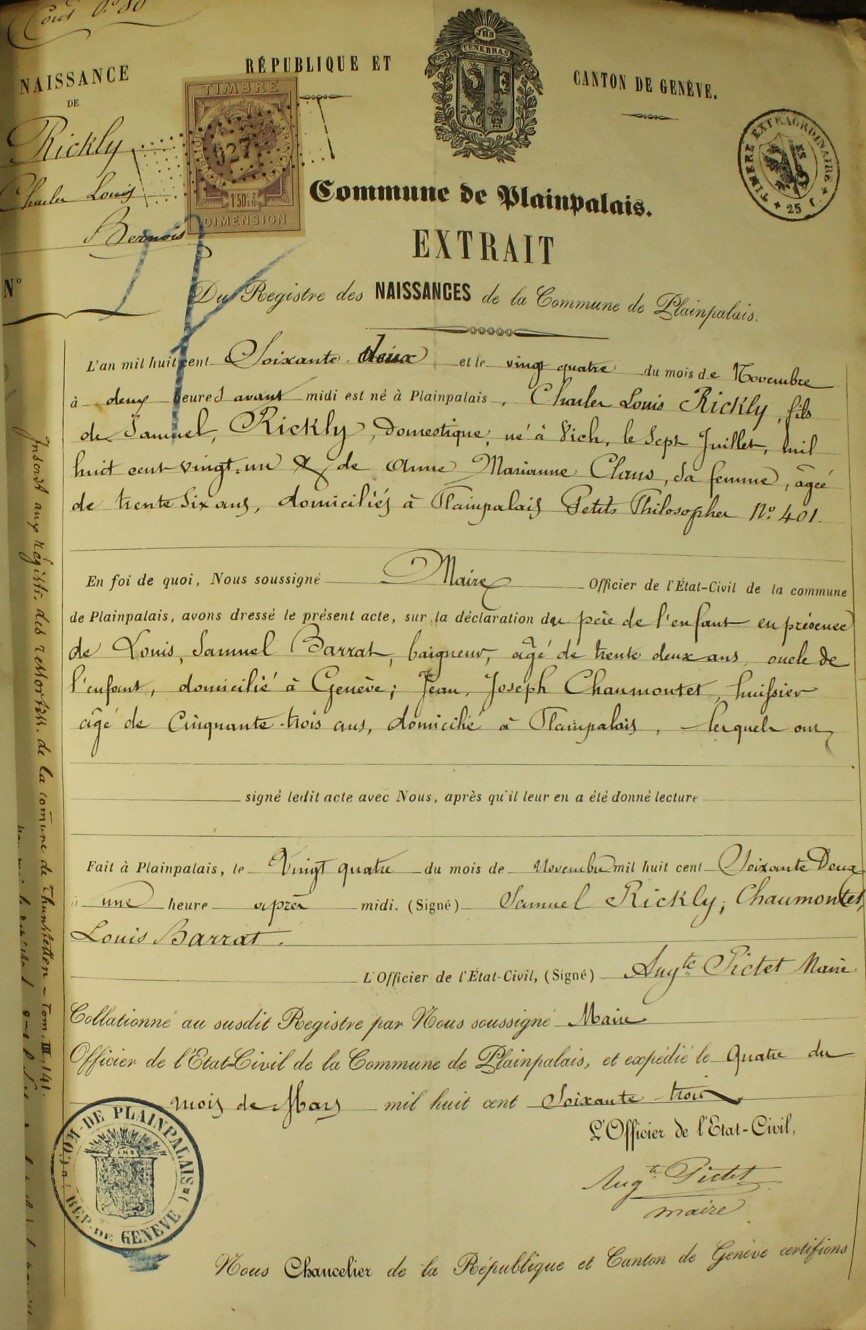 NAISSANCE
DE
Rickly
Charles Louis
Bernois
N°
RÉPUBLIQUE ET
CANTON DE GENÈVE.
JHS
TENEBRAS
TIMBRE
027
1 50
DIMENSION
TIMBRE EXTRAORDINAIRE
25
Commune de Plainpalais.
EXTRAIT
Du Registre des NAISSANCES de la Commune de Plainpalais.
L'an mil huit cent Soixante deux et le vingt quatre du mois de Novembre
à deux heures avant midi est né à Plainpalais, Charles Louis Rickly, fils
de Samuel, Rickly, Domestique, né à Vich, le Sept Juillet, mil
huit cent vingt-un & de Anne Marianne Claus, sa femme, âgée
de trente six ans, domiciliés à Plainpalais Petits Philosophes N° 401.
En foi de quoi, Nous soussigné Maire Officier de l'État-Civil de la commune
de Plainpalais, avons dressé le présent acte, sur la déclaration du père de l'enfant en présence
de Louis, Samuel Barrat, baigneur, âgé de trente deux ans, oncle de
l'enfant, domicilié à Genève; Jean, Joseph Chaumontet, huissier
âgé de Cinquante-trois ans, domicilié à Plainpalais, lesquels ont
signé ledit acte avec Nous, après qu'il leur en a été donné lecture
Fait à Plainpalais, le Vingt quatre du mois de Novembre mil huit cent Soixante Deux
à une heure après midi. (Signé) Samuel Rickly; Chaumontet,
Louis Barrat.
L'Officier de l'État-Civil, (Signé) Augte Pictet Maire
Collationné au susdit Registre par Nous soussigné Maire
Officier de l'Etat-Civil de la Commune de Plainpalais, et expédié le quatre du
mois de Mars mil huit cent Soixante trois
L'Officier de l'Etat-Civil,
Augte Pictet
maire
COM. DE PLAINPALAIS
REP. DE GENEVE
Nous Chancelier de la République et Canton de Genève certifions
Inscrit aux régistr. des ressortiss. de la comune de Thunstetten – Tom. III. 141.